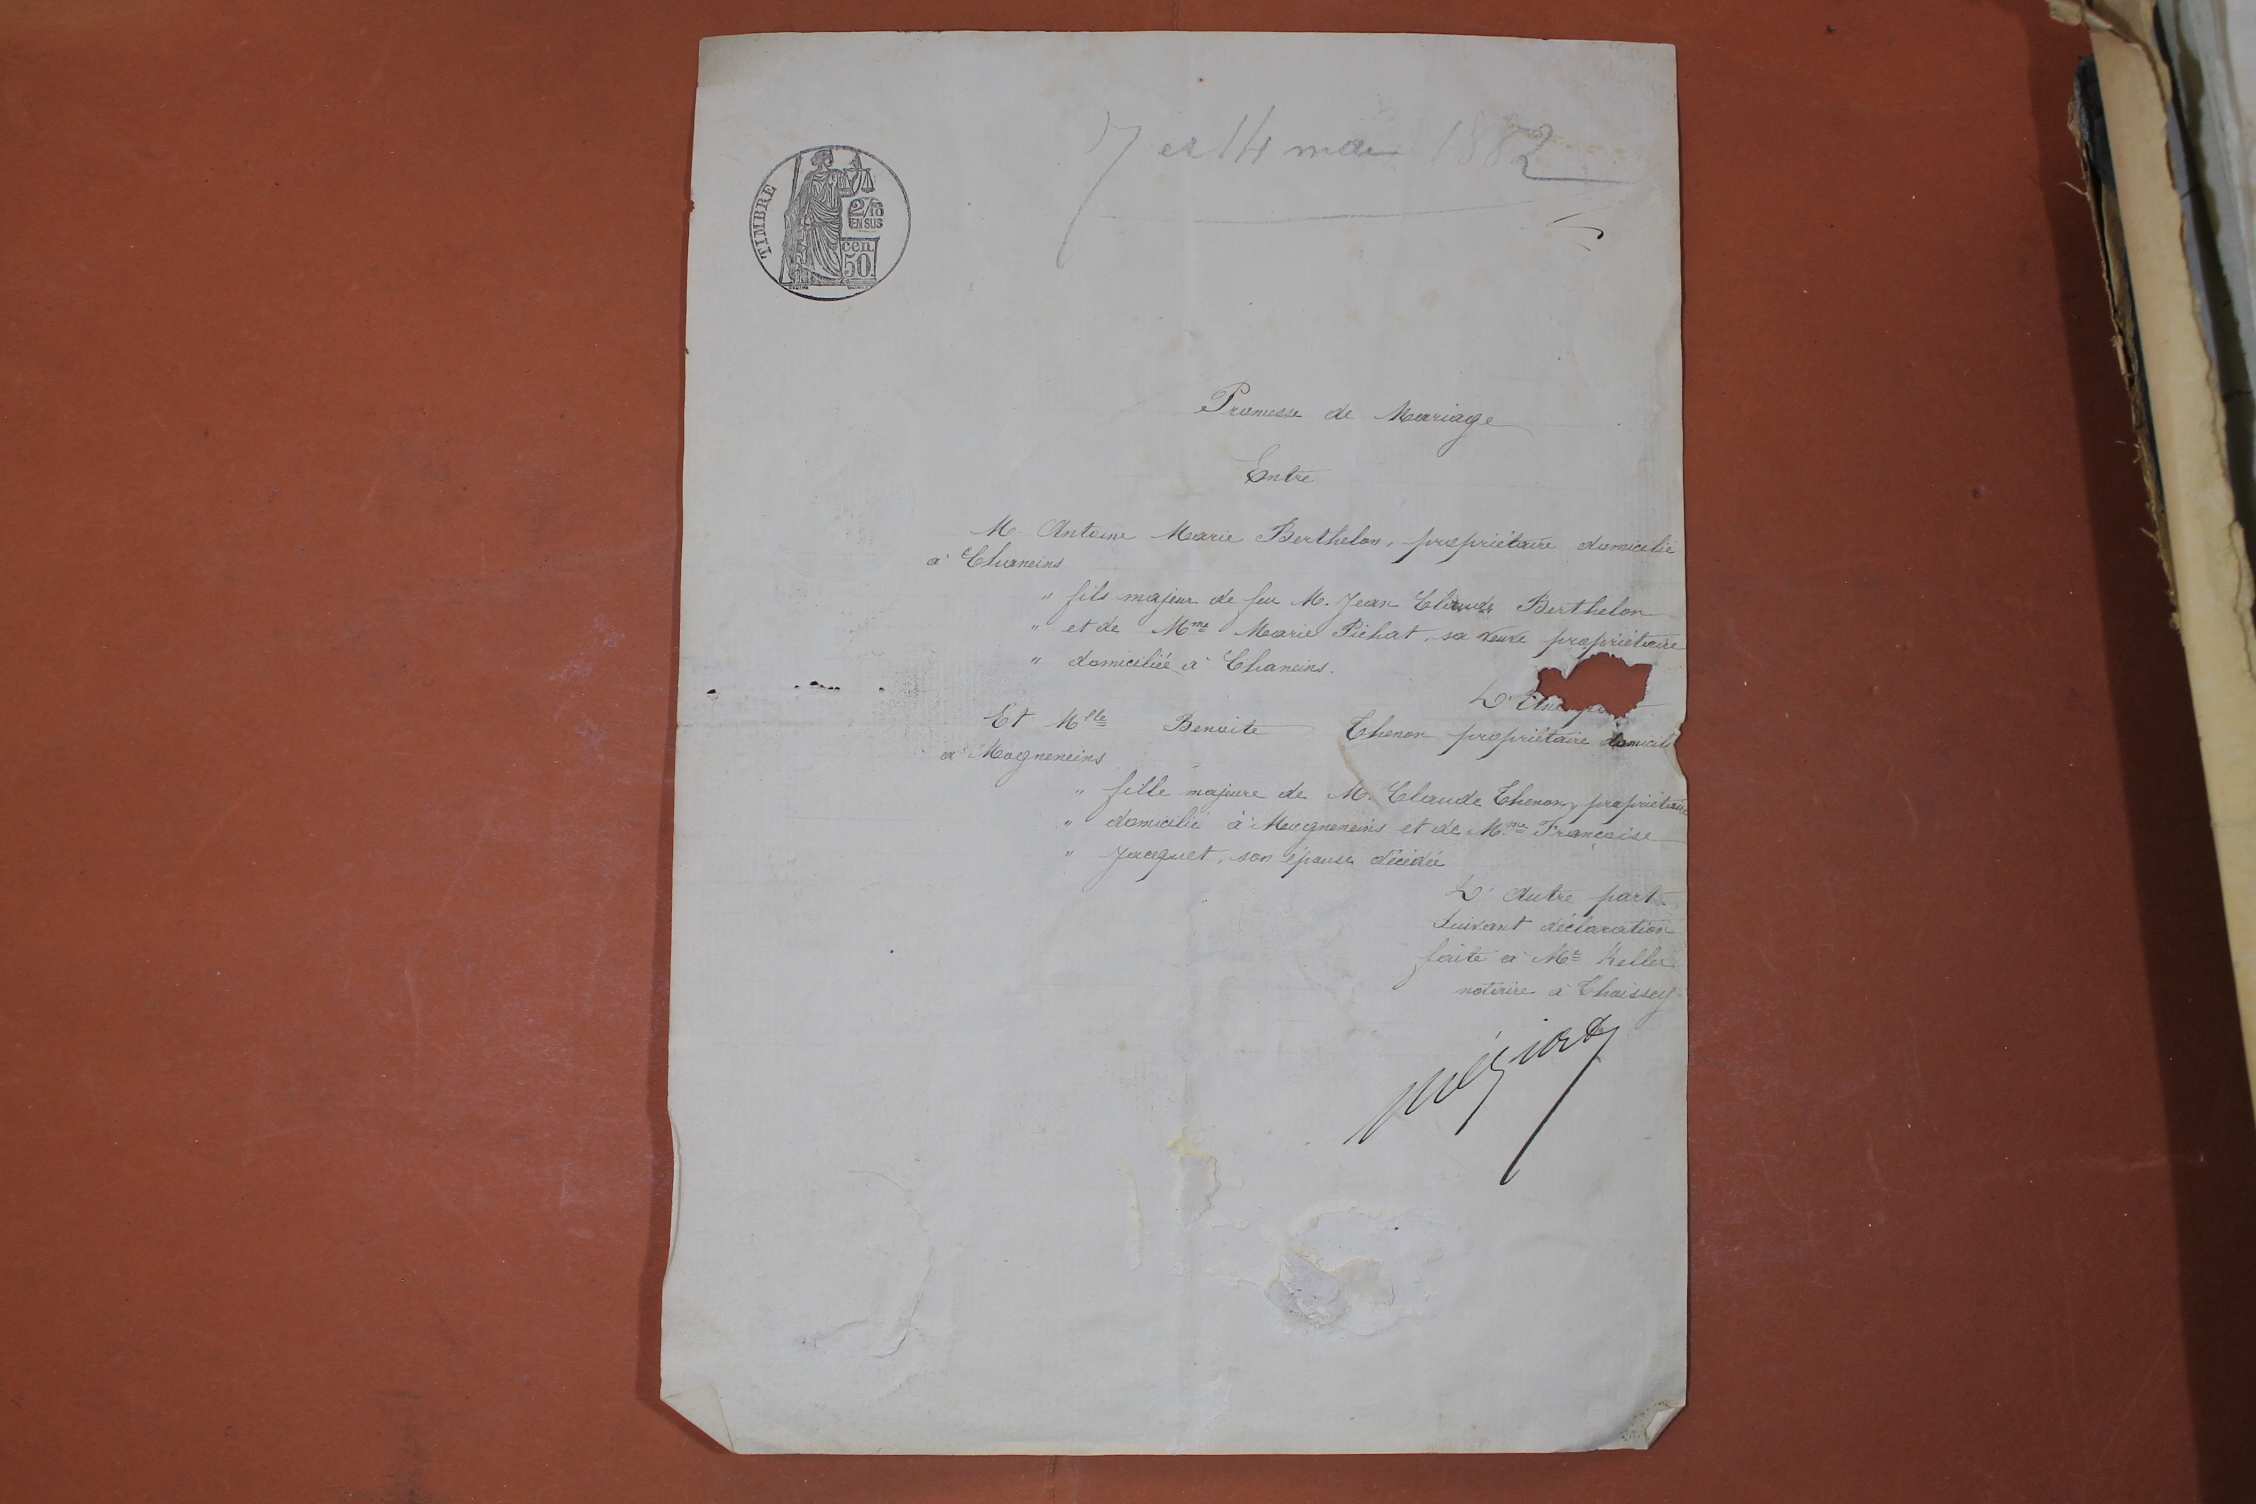 7 et 14 mai 1882
TIMBRE
2/10
EN SUS
cen.
50
Promesse de Mariage
Entre
M. Antoine Marie Berthelon, propriétaire domicilié
à Chaneins
" fils majeur de feu M. Jean Claude Berthelon
" et de Mme Marie Pichat, sa veuve propriétaire
" domiciliée à Chaneins.
D'Une
Et Mlle Benoite Thenon propriétaire domicili
à Mogneneins
" fille majeure de M. Claude Thenon, propriétaire
" domicilié à Mogneneins et de Mme Françoise
" Jacquet, son épouse décédée
D'Autre part.
Suivant déclaration
faite à Me Keller
notaire à Thoissey